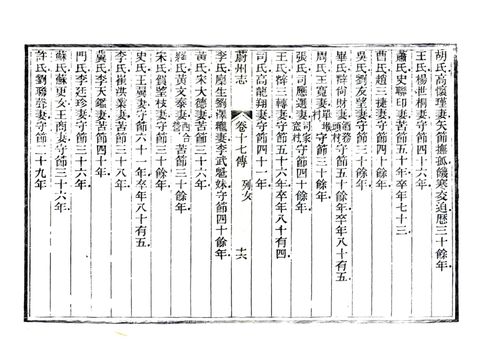 胡氏高懷瑾妻矢節撫孤饑寒交迫歷三十餘年
王氏楊世桐妻守節四十六年
蕭氏史聯印妻苦節五十年卒年七十三
曹氏趙三捷妻守節四十餘年
吳氏劉友望妻守節三十餘年
畢氏薛尙財妻守節五十餘年卒年八十五
周氏王寬妻守節三十餘年
張氏司應選妻守節三十餘年
王氏薛三轉妻守節五十六年卒年八十有四
司氏高龍翔妻守節四十一年
蔚州志
卷十七傳 列女 十六
李氏廩生劉澤穮妻李武魁妹守節四十餘年
黃氏宋大德妻苦節四十年
經氏黃文泰妻西合營苦節三十餘年
宋氏賀望枝妻守節三十餘年
史氏王翼妻守節六十一年卒年八十有五
李氏崔洪業妻苦節三十年
冀氏李天鑑妻苦節四十年
門氏李廷珍妻守節三十六年
蘇氏蘇更女王商妻守節三十六年
許氏劉聯聲妻守節三十九年